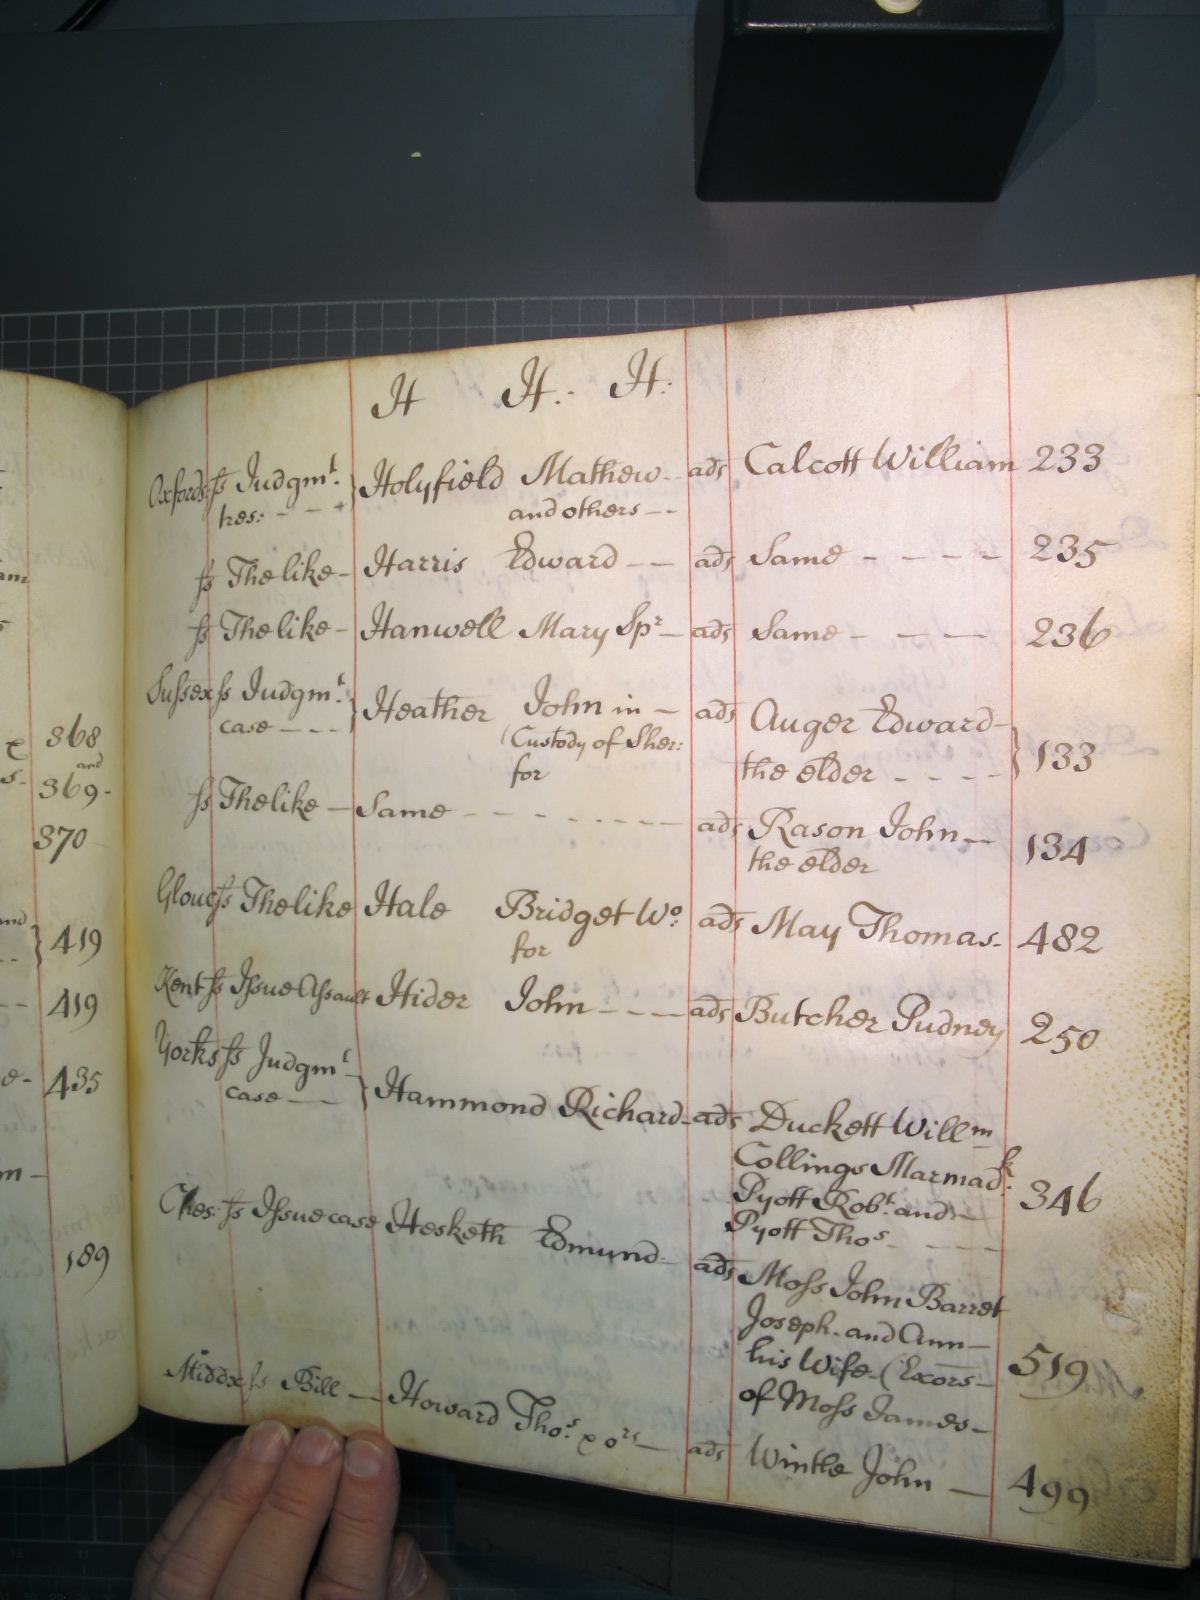 H H. H:
Oxfords ss Judgmt. Holyfield Mathew ads Calcott William 233
tres: and others
ss The like Harris Edward ads Same 235
ss The like Hanwell Mary Spr ads Same 236
Sussex ss Judgmt. Heather John in ads Auger Edward
case (Custody of Sher: the elder 133
for
ss The like Same ads Rason John 134
the elder
Glouc ss The like Hale Bridget Wo: ads May Thomas 482
for
Kent ss Issue Assault Hider John ads Butcher Pudney 250
Yorks ss Judgmt
case Hammond Richard ads Duckett Willm
Collings Marmadk. 346
Pyott Robt. and
Pyott Thos
Ches: ss Issue case Hesketh Edmund ads Moss John Barret
Joseph and Ann
his Wife (Exors 519
of Moss James
Middx ss Bill Howard Thos. & ors ads Winthe John 499
368
and
369
370
419
419
435
189